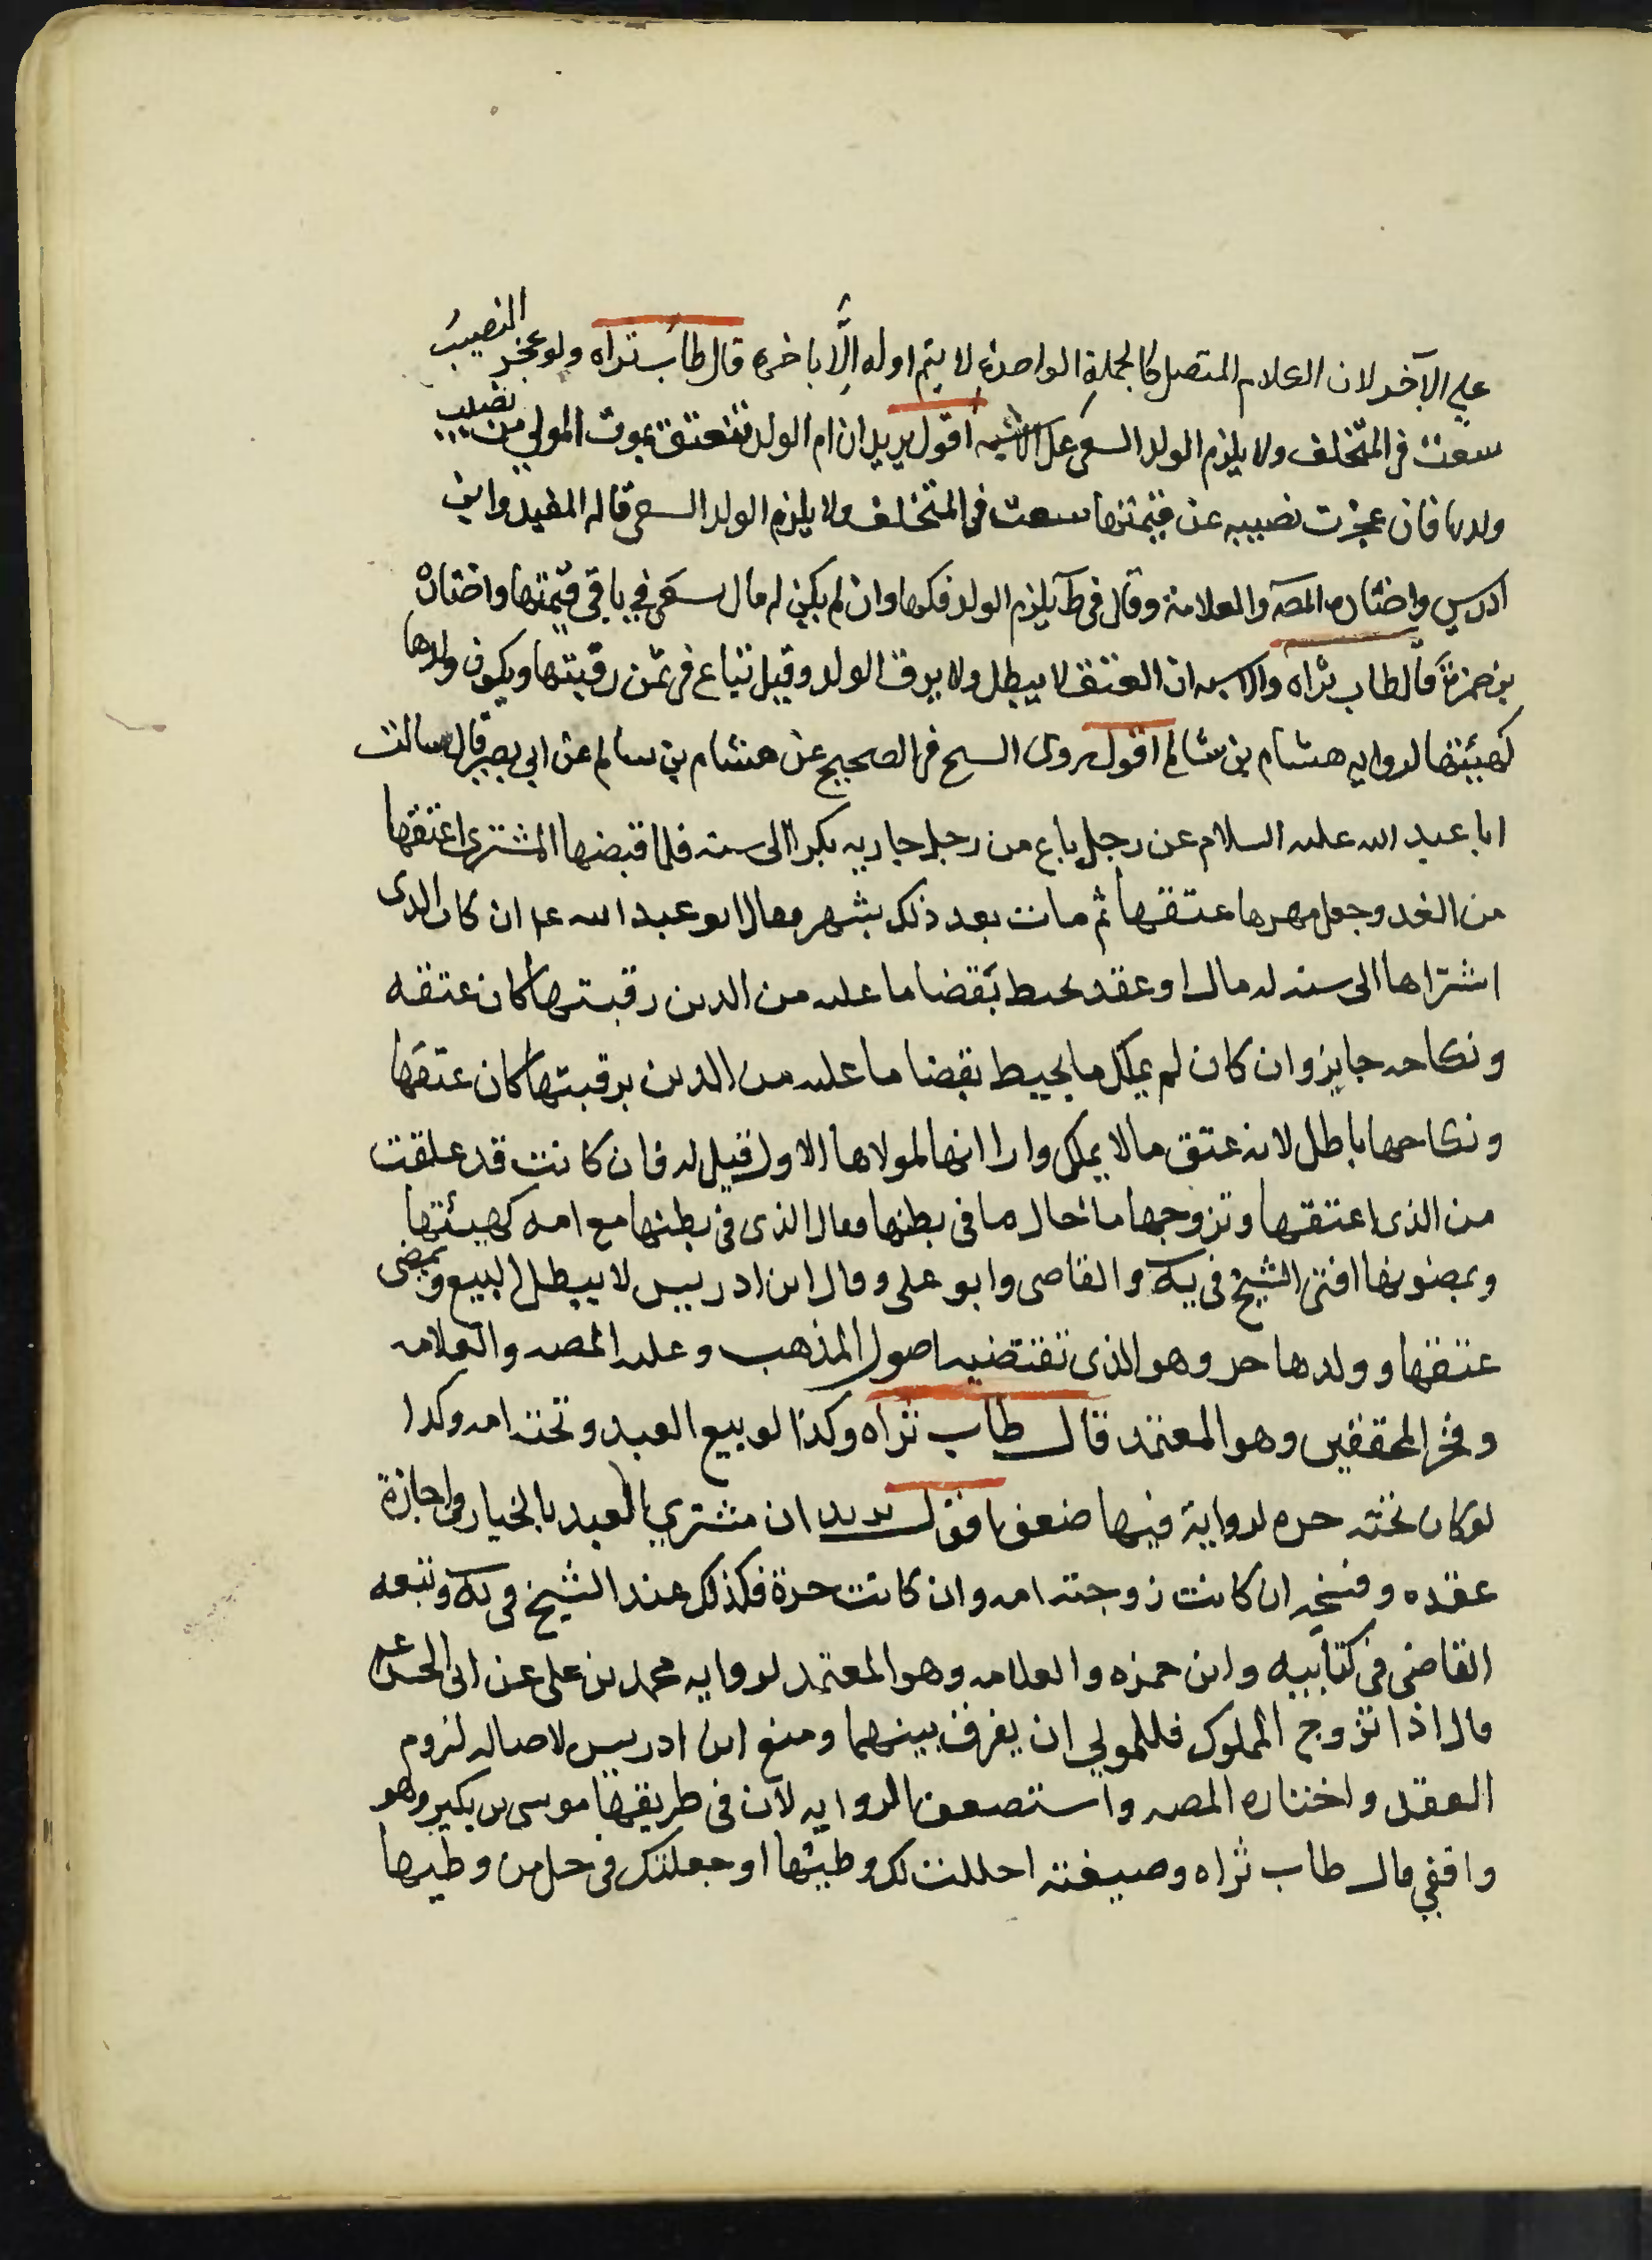 علي الآخر لان الكلام المتصل كالجملة الواحدة لا يتم اوله إلّا باخره قال طاب ثراه ولو عجز النصيب
سعت في المتخلف ولا يلزم الولد السعي على الاشبه أقول يريد ان ام الولد تنعتق بموت المولي من نصيب
ولدها فان عجزت نصيبه عن قيمتها سعت في المتخلف ولا يلزم الولد السعي قاله المفيد وابن
ادريس واختاره المصه والعلامة وقال في ط يلزم الولد فكها وان لم يكن له مال سعى في باقي قيمتها واختاره
بن حمزة قال طاب ثراه والاشبه ان العتق لا يبطل ولا يرق الولد وقيل تباع في ثمن رقبتها ويكون ولدها
كهيئتها لروايه هشام بن سالم اقول روى الشيخ في الصحيح عن هشام بن سالم عن ابي بصير قال سالت
ابا عبد الله عليه السلام عن رجل باع من رجل جاريه بكرا الى سنه فلما قبضها المشتري اعتقها
من الغد وجعل مهرها عتقها ثم مات بعد ذلك بشهر فقال ابو عبد الله ع ان كان الذى
اشتراها الى سنه له مال او عقد يحيط بقضا ما عليه من الدين رقبتها كان عتقه
ونكاحه جايز وان كان لم يملك ما يحيط بقضا ما عليه من الدين برقبتها كان عتقها
ونكاحها باطل لانه عتق ما لا يملك وارا انها لمولاها الاول قيل له فان كانت قد علقت
من الذى اعتقها وتزوجها ما حال ما في بطنها فقال الذى في بطنها مع امه كهيئتها
وبمضمونها افتى الشيخ في يه والقاضى وابو على وقال ابن ادريس لا يبطل البيع ويمضى
عتقها وولدها حر وهو الذى تقتضيه اصول المذهب وعليه المصه والعلامه
وفخر المحققين وهو المعتمد قال طاب ثراه وكذا لو بيع العبد وتحته امه وكدا
لو كان تحته حره لرواية فيها ضعف اقول يريد ان مشتري العبد بالخيار في اجازة
عقده وفسخه ان كانت زوجته امه وان كانت حرة فكذلك عند الشيخ في يه وتبعه
القاضي في كتابيه وابن حمزه والعلامه وهو المعتمد لروايه محمد بن على عن ابى الحسن ع
قال اذا تزوج المملوك فللمولي ان يفرق بينهما ومنع ابن ادريس لاصاله لزوم
العقد واختاره المصه واستضعف الروايه لان في طريقها موسى بن بكير وهو
واقفي قال طاب ثراه وصيغته احللت لك وطيئها او جعلتك في حل من وطيها